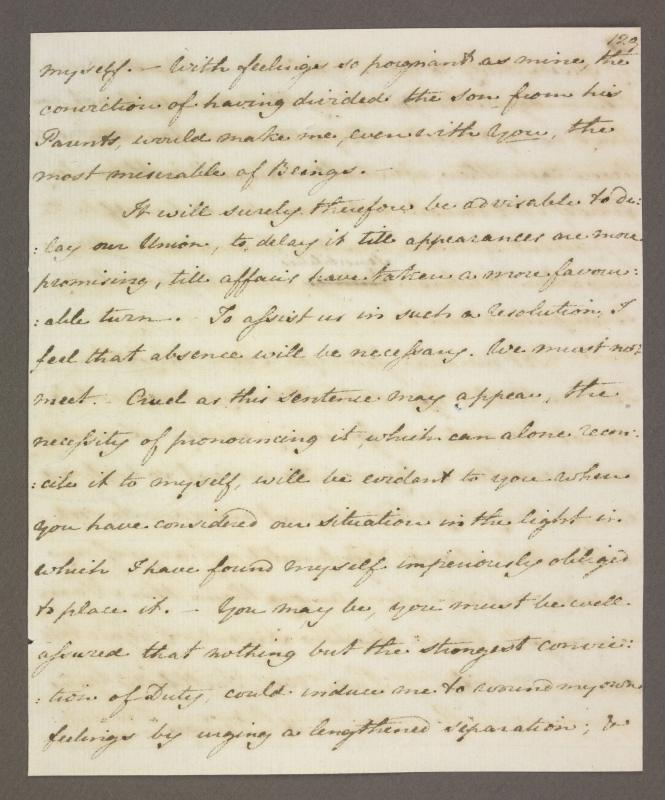 129
myself. — With feelings so poignant as mine, the
conviction of having divided the son from his
Parents, would make me, even with You, the
most miserable of Beings. —
It will surely therefore be advisable to de:
:lay our Union, to delay it till appearances are more
promising, till affairs have taken a more favour:
:able turn. To assist us in such a Resolution, I
feel that absence will be necessary. We must not
meet. Cruel as this sentence may appear, the
necessity of pronouncing it, which can alone recon:
:cile it to myself, will be evident to you when
you have considered our situation in the light in
which I have found myself imperiously obliged
to place it. — You may be, you must be well
assured that nothing but the strongest convic:
:tion of Duty, could induce me to wound my own
feelings by urging a lengthened separation; &